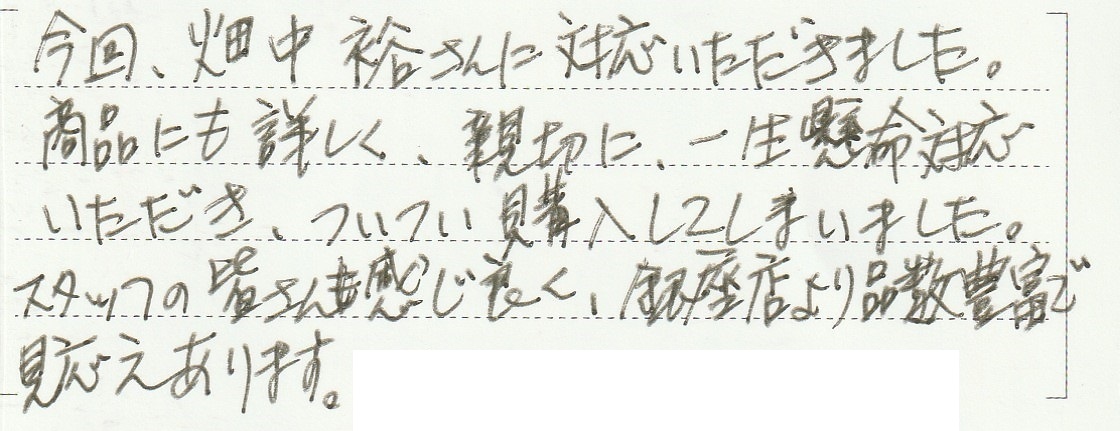 今回、畑中 裕さんに対応いただきました。
商品にも詳しく、親切に、一生懸命対応
いただき、ついつい購入してしまいました。
スタッフの皆さんも感じ良く、銀座店より品数豊富で
見応えあります。